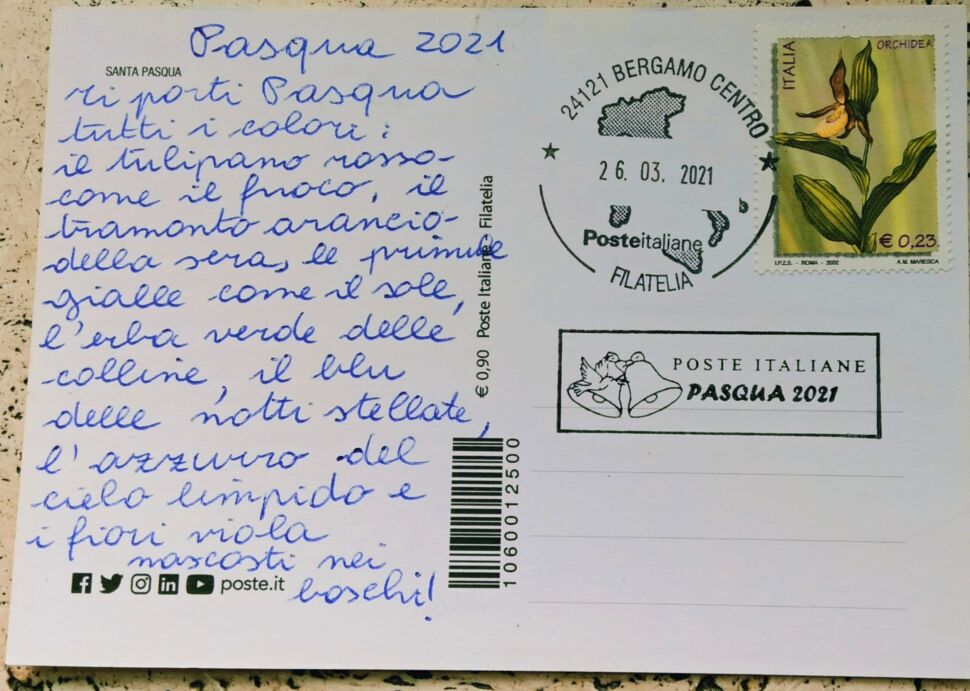 Pasqua 2021
SANTA PASQUA
ri porti Pasqua
tutti i colori:
il tulipano rosso-
come il fuoco, il
tramonto arancio-
della sera, le primule
gialle come il sole,
l'erba verde delle
colline, il blu
delle notti stellate,
l'azzurro del
cielo limpido e
i fiori viola
nascosti nei
boschi!
poste.it
€ 0,90 Poste Italiane - Filatelia
1060012500
24121 BERGAMO CENTRO
26. 03. 2021
Posteitaliane
FILATELIA
ITALIA
ORCHIDEA
€ 0,23
I.P.Z.S. - ROMA - 2002
A.M. MARESCA
POSTE ITALIANE
PASQUA 2021